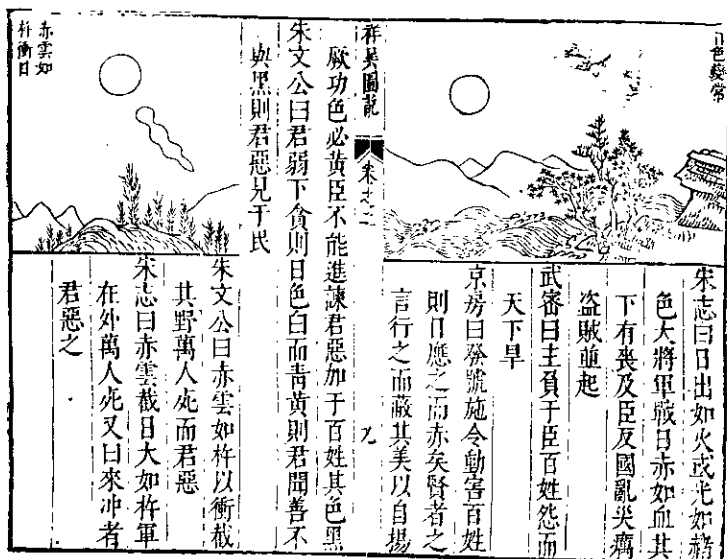 日色變常
宋志曰日出如火或光如赭
色大將軍戰日赤如血其
下有喪及臣反國亂失
盜賊並起
武密曰主負于臣百姓怨而
天下旱
京房曰發號施令動害百姓
則日應之而赤矣賢者之
言行之而蔽其美以自揚
祥異圖說 卷之二 九
厥功色必黃臣不能進諫君惡加于百姓其色黑
朱文公曰君弱下貪則日色白而青黃則君聞善不
與黑則君惡見于民
赤雲如
杵衝日
朱文公曰赤雲如杵以衝截
其野萬人死而君惡
宋志曰赤雲截日大如杵軍
在外萬人死又曰來冲者
君惡之